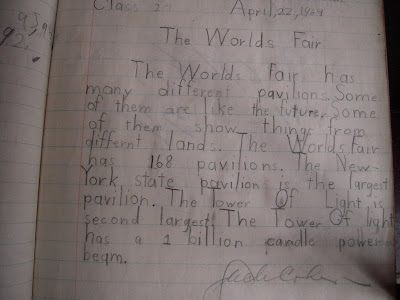 Class 2-
April, 22, 1964
The Worlds Fair
The Worlds Fair has
many different pavilions. Some
of them are like the future. Some
of them show things from
differnt lands. The Worlds fair
has 168 pavilions. The New
York state pavilion is the largest
pavilion. The Tower Of Light is
second largest. The Tower Of light
has a 1 billion candle power
beam.